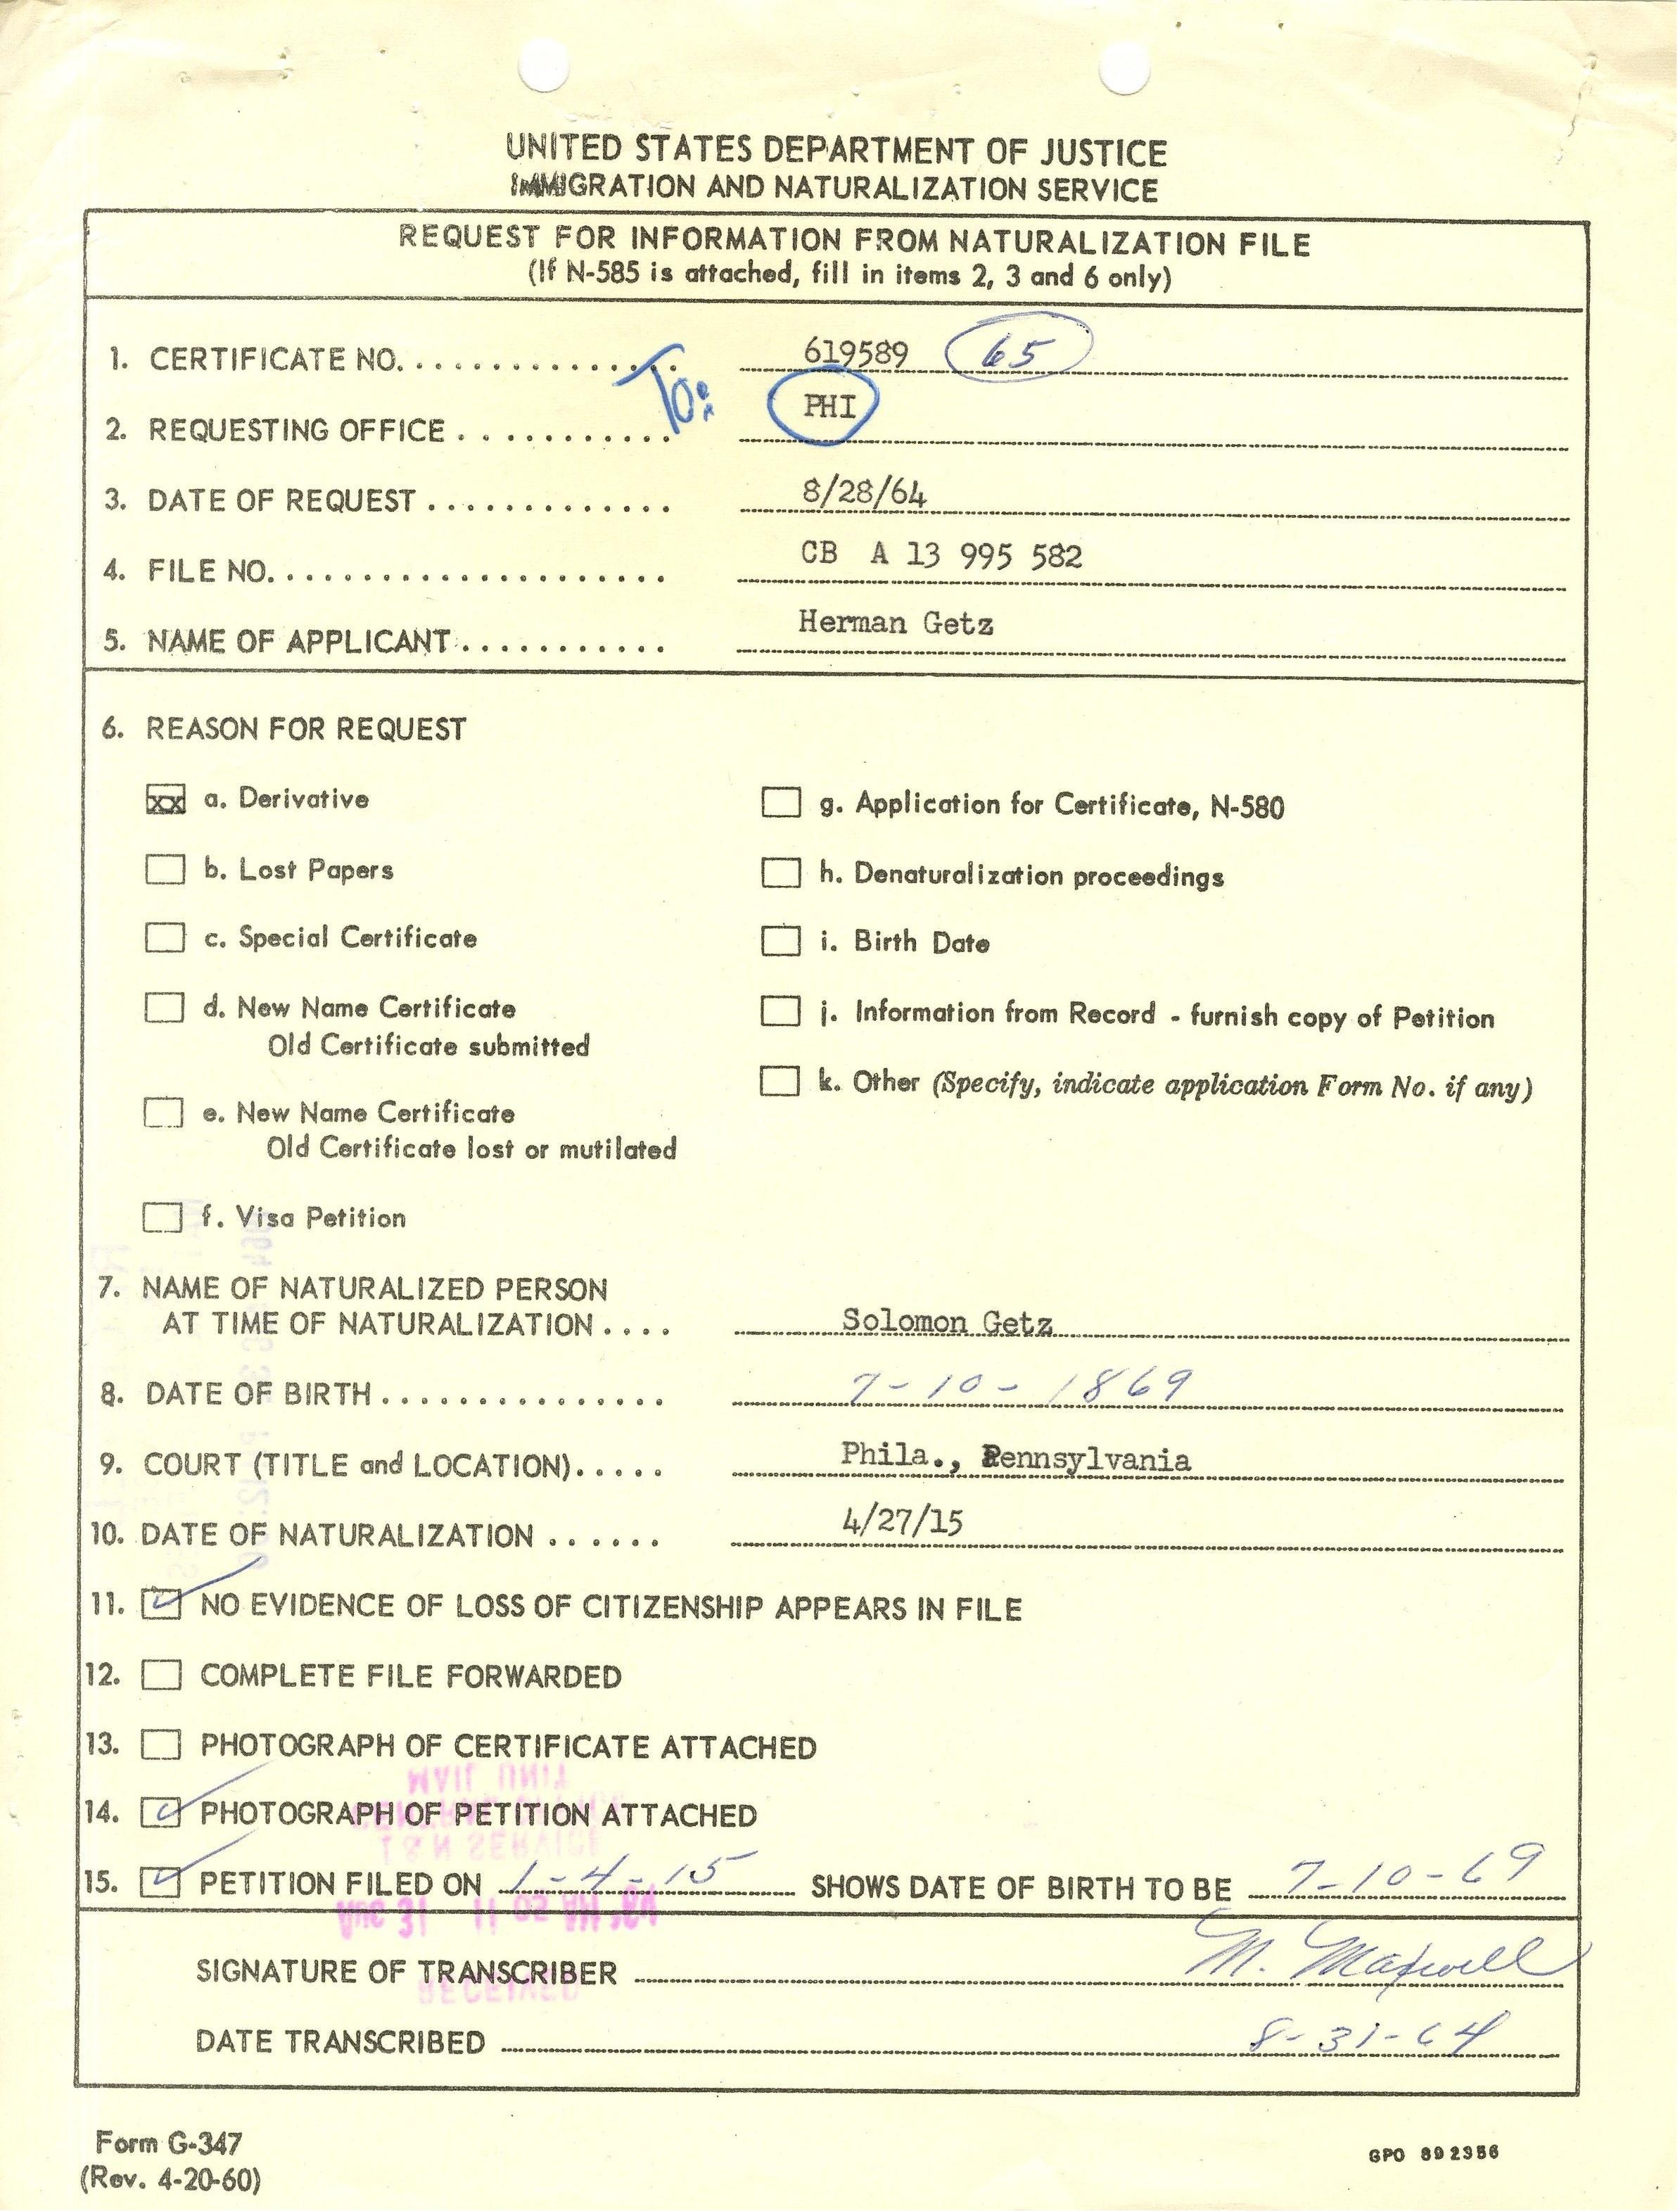 UNITED STATES DEPARTMENT OF JUSTICE
IMMIGRATION AND NATURALIZATION SERVICE
REQUEST FOR INFORMATION FROM NATURALIZATION FILE
(If N-585 is attached, fill in items 2, 3 and 6 only)
1. CERTIFICATE NO. .............. 619589 65
To:
2. REQUESTING OFFICE ........... PHI
3. DATE OF REQUEST ............. 8/28/64
4. FILE NO. .................... CB A 13 995 582
5. NAME OF APPLICANT ........... Herman Getz
6. REASON FOR REQUEST
xx a. Derivative
b. Lost Papers
c. Special Certificate
d. New Name Certificate
Old Certificate submitted
e. New Name Certificate
Old Certificate lost or mutilated
f. Visa Petition
g. Application for Certificate, N-580
h. Denaturalization proceedings
i. Birth Date
j. Information from Record - furnish copy of Petition
k. Other (Specify, indicate application Form No. if any)
7. NAME OF NATURALIZED PERSON
AT TIME OF NATURALIZATION .... Solomon Getz
8. DATE OF BIRTH ............... 7-10-1869
9. COURT (TITLE and LOCATION)..... Phila., Pennsylvania
10. DATE OF NATURALIZATION ...... 4/27/15
11. ✓ NO EVIDENCE OF LOSS OF CITIZENSHIP APPEARS IN FILE
12. COMPLETE FILE FORWARDED
13. PHOTOGRAPH OF CERTIFICATE ATTACHED
MAIL UNIT
14. ✓ PHOTOGRAPH OF PETITION ATTACHED
I & N SERVICE
15. ✓ PETITION FILED ON 1-4-15 SHOWS DATE OF BIRTH TO BE 7-10-69
AUG 31 11 02 AM '64
SIGNATURE OF TRANSCRIBER M. Maxwell
RECEIVED
DATE TRANSCRIBED 8-31-64
Form G-347
(Rev. 4-20-60)
GPO 892356